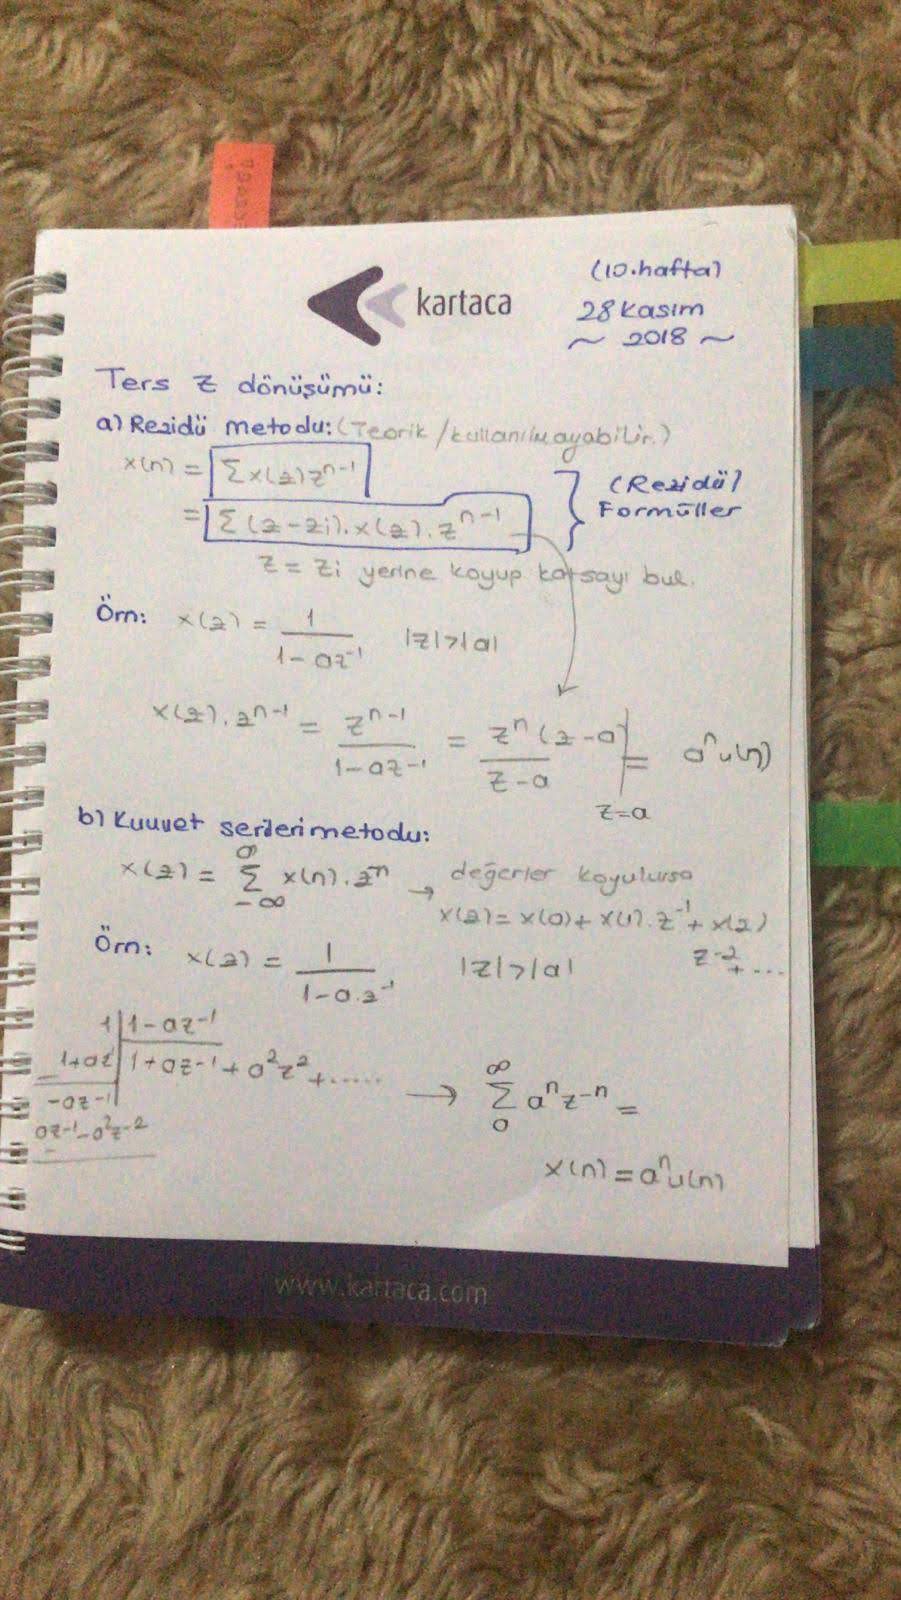 (10.hafta)
kartaca
28 Kasım
~ 2018 ~
Ters Z dönüşümü:
a) Rezidü metodu: (Teorik / kullanılmayabilir.)
x(n) = Σx(z)z^n-1
= Σ(z-zi).x(z).z^n-1
} (Rezidü) Formüller
z = zi yerine koyup katsayı bul.
Örn: x(z) = 1/(1-az^-1) |z|>|a|
x(z).z^n-1 = z^n-1/(1-az^-1) = z^n(z-a)/(z-a) | z=a = a^n u(n)
b) Kuvvet serileri metodu:
x(z) = Σ_{-∞}^{∞} x(n).z^n → değerler koyulursa
x(z) = x(0) + x(1).z^-1 + x(2)
z^-2 + ...
Örn: x(z) = 1/(1-a.z^-1) |z|>|a|
1 | 1-az^-1
1+az | 1+az^-1 + a^2z^2 + .....
-az^-1
az^-1 - a^2z^-2
→ Σ_{0}^{∞} a^n z^-n =
x(n) = a^n u(n)
www.kartaca.com